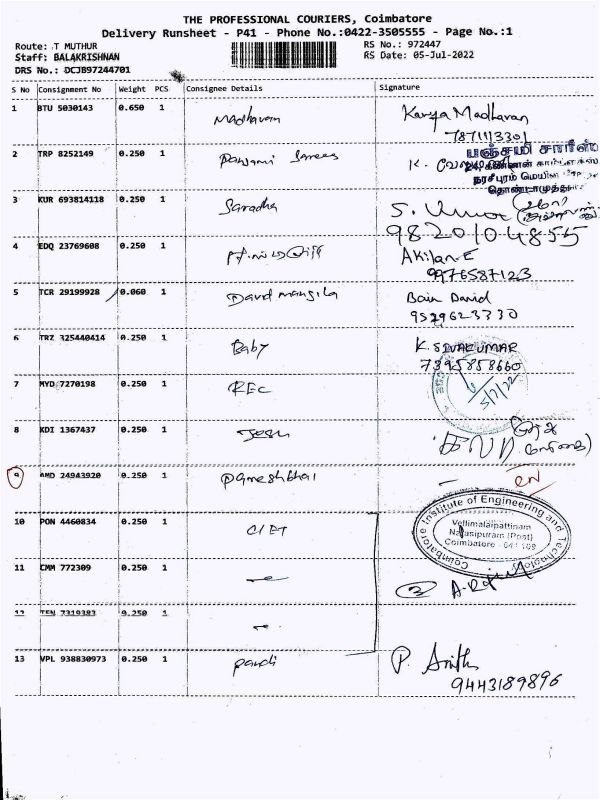 THE PROFESSIONAL COURIERS, Coimbatore
Delivery Runsheet - P41 - Phone No.:0422-3505555 - Page No.:1
Route: T MUTHUR
RS No.: 972447
Staff: BALAKRISHNAN
RS Date: 05-Jul-2022
DRS No.: DCJ897244701
S No Consignment No Weight PCS Consignee Details Signature
1 BTU 5030143 0.650 1 Madhavan Kavya Madhavan
7871113301
2 TRP 8252149 0.250 1 Sarees K. பஞ்சமி சாரீஸ்
நரசீபுரம் மெயின்
3 KUR 693814118 0.250 1 Saradha S.
9820104855
4 EDQ 23769608 0.250 1 Akilan E
9976587123
5 TCR 29199928 0.060 1 David mangila Bain David
9529623330
6 TRZ 325440414 0.250 1 Baby K. SIVAKUMAR
7395858660
7 MYD 7270198 0.250 1 REC 5/7/22
8 KDI 1367437 0.250 1
9 AMD 24943920 0.250 1 Pgmeshbhai -
10 PON 4460834 0.250 1 CIET Coimbatore Institute of Engineering and Technology
Vellimalaipattinam
Narasipuram (Post)
Coimbatore - 641 109
11 CMM 772309 0.250 1 3
12 TEN 7319383 0.250 1
13 VPL 938830973 0.250 1 pandi P.
9443189896